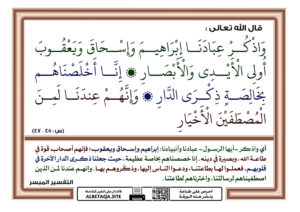 قال الله تعالى :
وَاذْكُرْ عِبَادَنَا إِبْرَاهِيمَ وَإِسْحَاقَ وَيَعْقُوبَ
أُولِي الْأَيْدِي وَالْأَبْصَارِ ۝ إِنَّا أَخْلَصْنَاهُم
بِخَالِصَةٍ ذِكْرَى الدَّارِ ۝ وَإِنَّهُمْ عِندَنَا لَمِنَ
الْمُصْطَفَيْنَ الْأَخْيَارِ
(ص: ٤٥- ٤٧)
أي واذكر -أيها الرسول- عبادنا وأنبياءنا: إبراهيم وإسحاق ويعقوب؛ فإنهم أصحاب قوة في
طاعة الله، وبصيرة في دينه. إنا خصصناهم بخاصة عظيمة، حيث جعلنا ذكرى الدار الآخرة في
قلوبهم، فعملوا لها بطاعتنا، ودعوا الناس إليها، وذكروهم بها. وإنهم عندنا لمن الذين
اصطفيناهم لرسالتنا، واخترناهم لطاعتنا.
التفسير الميسر
احرص على طباعة
ونشر هذه البطاقة
ALBETAQA.SITE